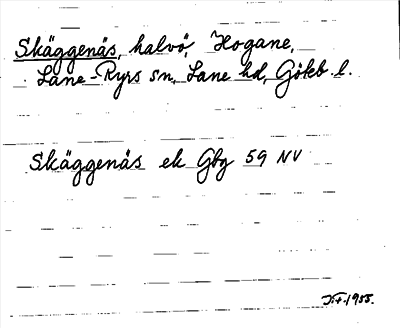 Skäggenäs, halvö Hogane,
Lane-Ryrs sn, Lane hd, Göteb. l.
Skäggenäs ek Gbg 59 NV
J.F. 1955.